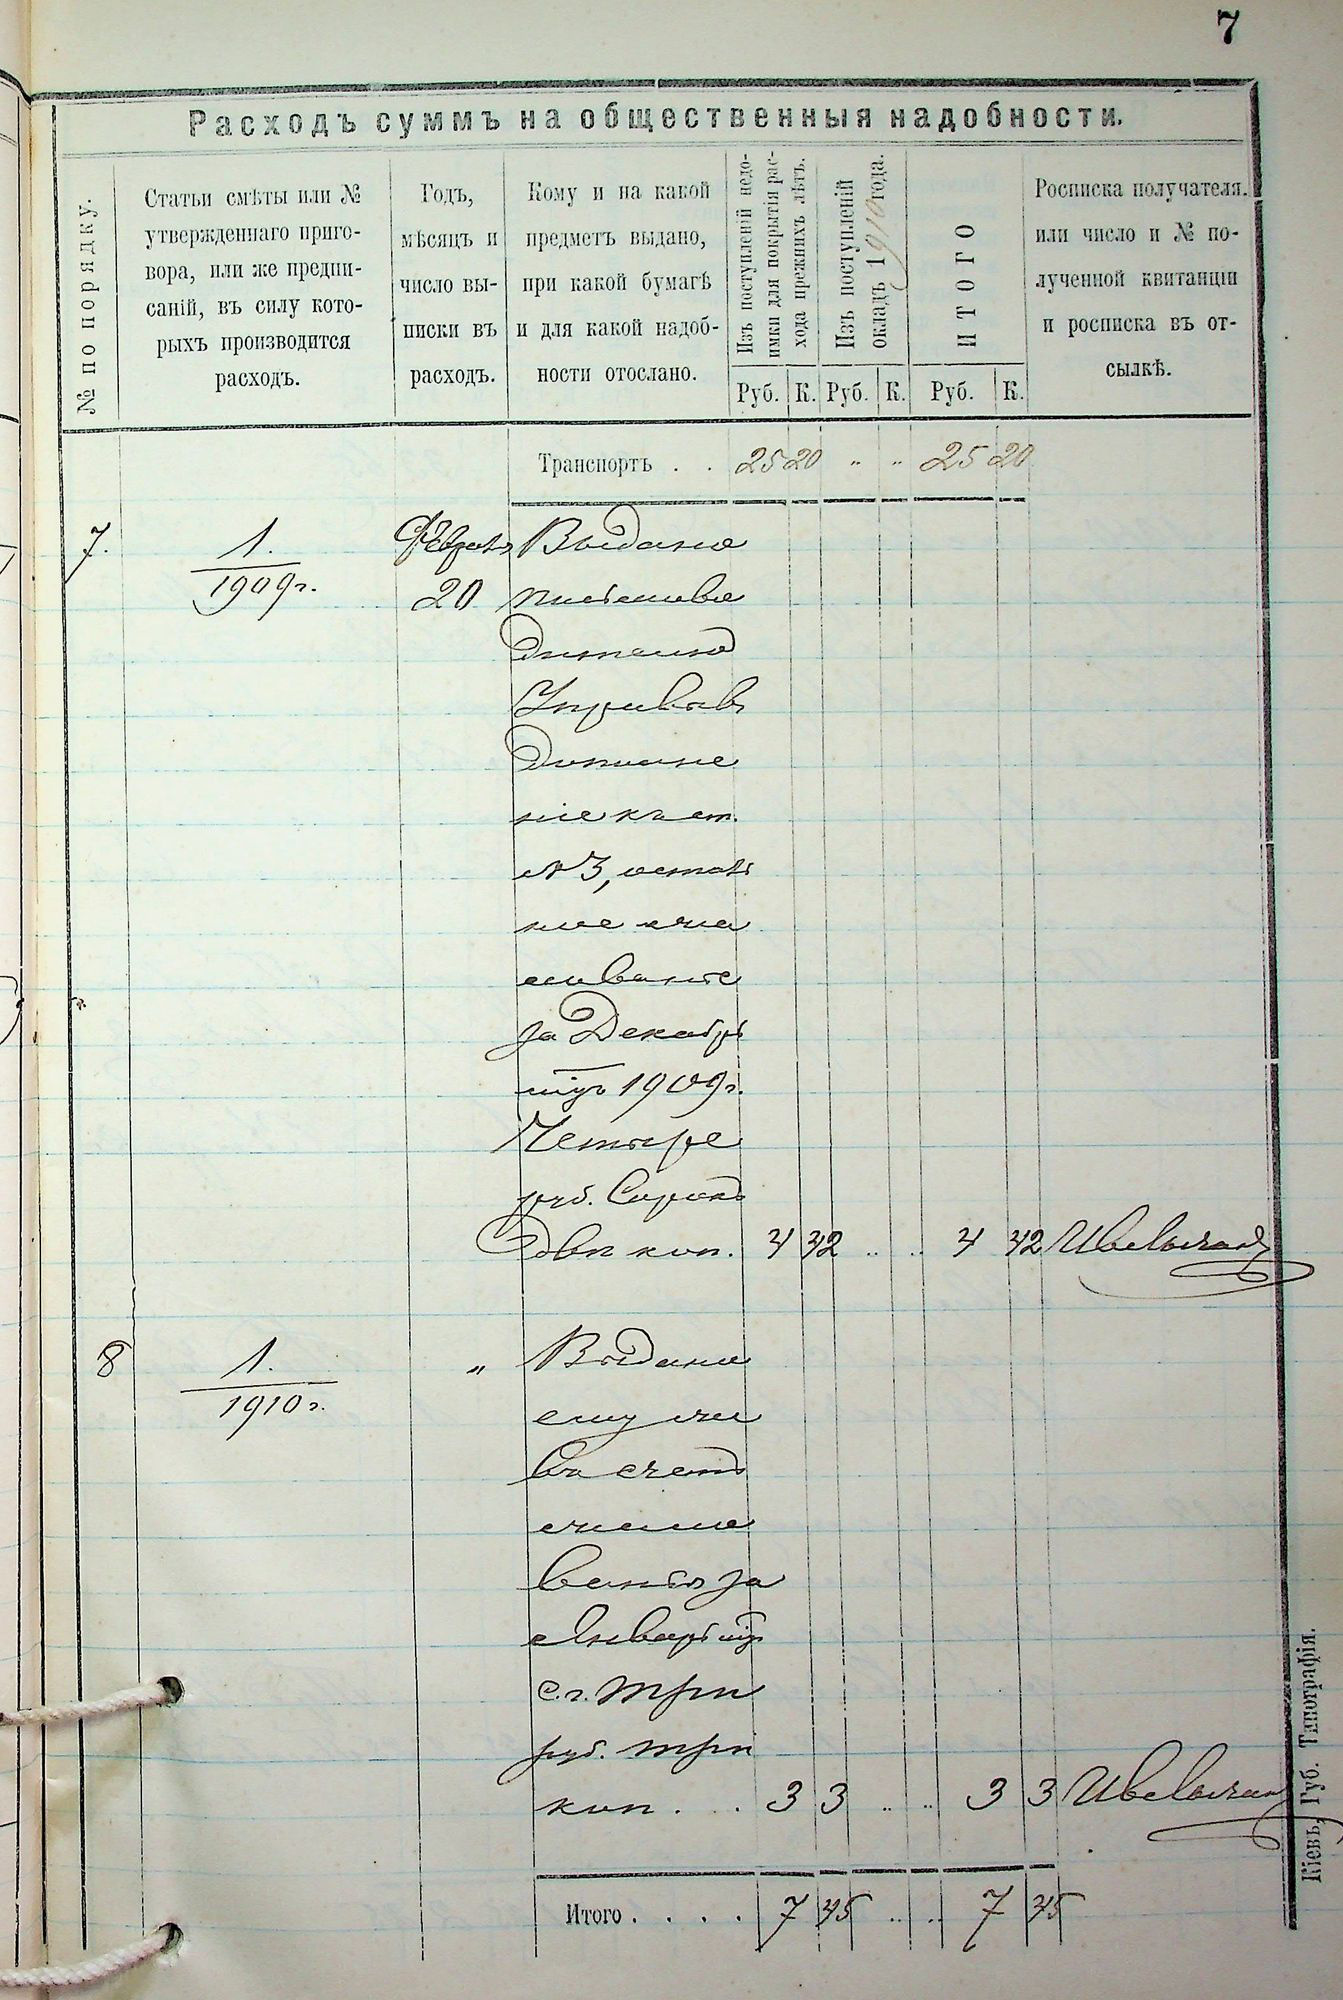 7
Расходъ суммъ на общественныя надобности.
№ по порядку.
Статьи смѣты или №
утвержденнаго приго-
вора, или же предпи-
саній, въ силу кото-
рыхъ производится
расходъ.
Годъ,
мѣсяцъ и
число вы-
писки въ
расходъ.
Кому и на какой
предметъ выдано,
при какой бумагѣ
и для какой надоб-
ности отослано.
Изъ поступленій недо-
имки для покрытія рас-
хода прежнихъ лѣтъ.
Изъ поступленій
окладъ 1910 года.
ИТОГО
Росписка получателя.
или число и № по-
лученной квитанціи
и росписка въ от-
сылкѣ.
Руб. К. Руб. К. Руб. К.
Транспортъ . . 25 20 „ „ 25 20
7. 1. Выдано
1909 г. 20
ніе къ ст.
№ 3, осталь
ное
за Декабрь
мц 1909 г.
Четыре
руб. Сорокъ
Двѣ коп. 4 42 „ „ 4 42
8 1. „ Выдано
1910 г. ему же
въ счетъ
за
Январь мц
с. г. три
руб. три
коп. . . 3 3 „ „ 3 3
Итого . . . . 7 45 „ „ 7 45
Кіевъ, Губ. Типографія.